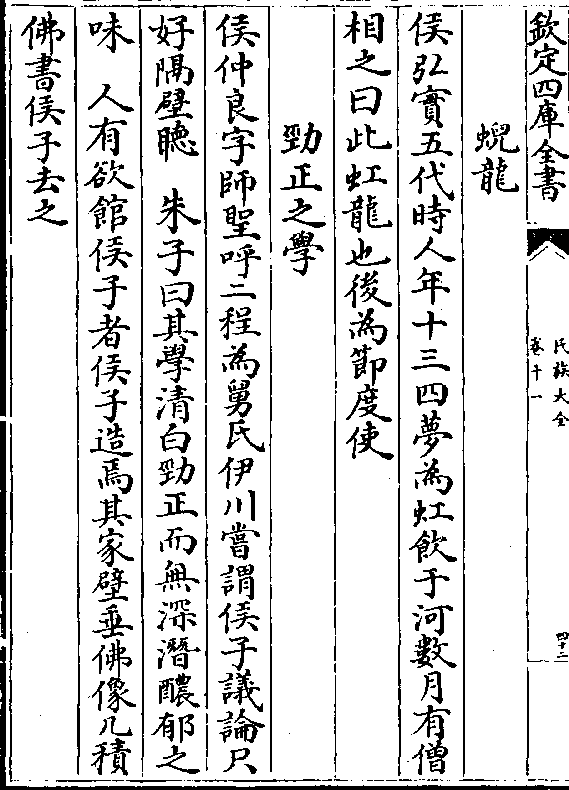 欽定四庫全書
氏族大全
卷十一
四十二
蜺龍
侯弘實五代時人年十三四夢為虹飲于河數月有僧
相之曰此虹龍也後為節度使
勁正之學
侯仲良字師聖呼二程為舅氏伊川嘗謂侯子議論只
好隔壁聽　朱子曰其學清白勁正而無深潛醲郁之
味　人有欲館侯子者侯子造焉其家壁垂佛像几積
佛書侯子去之